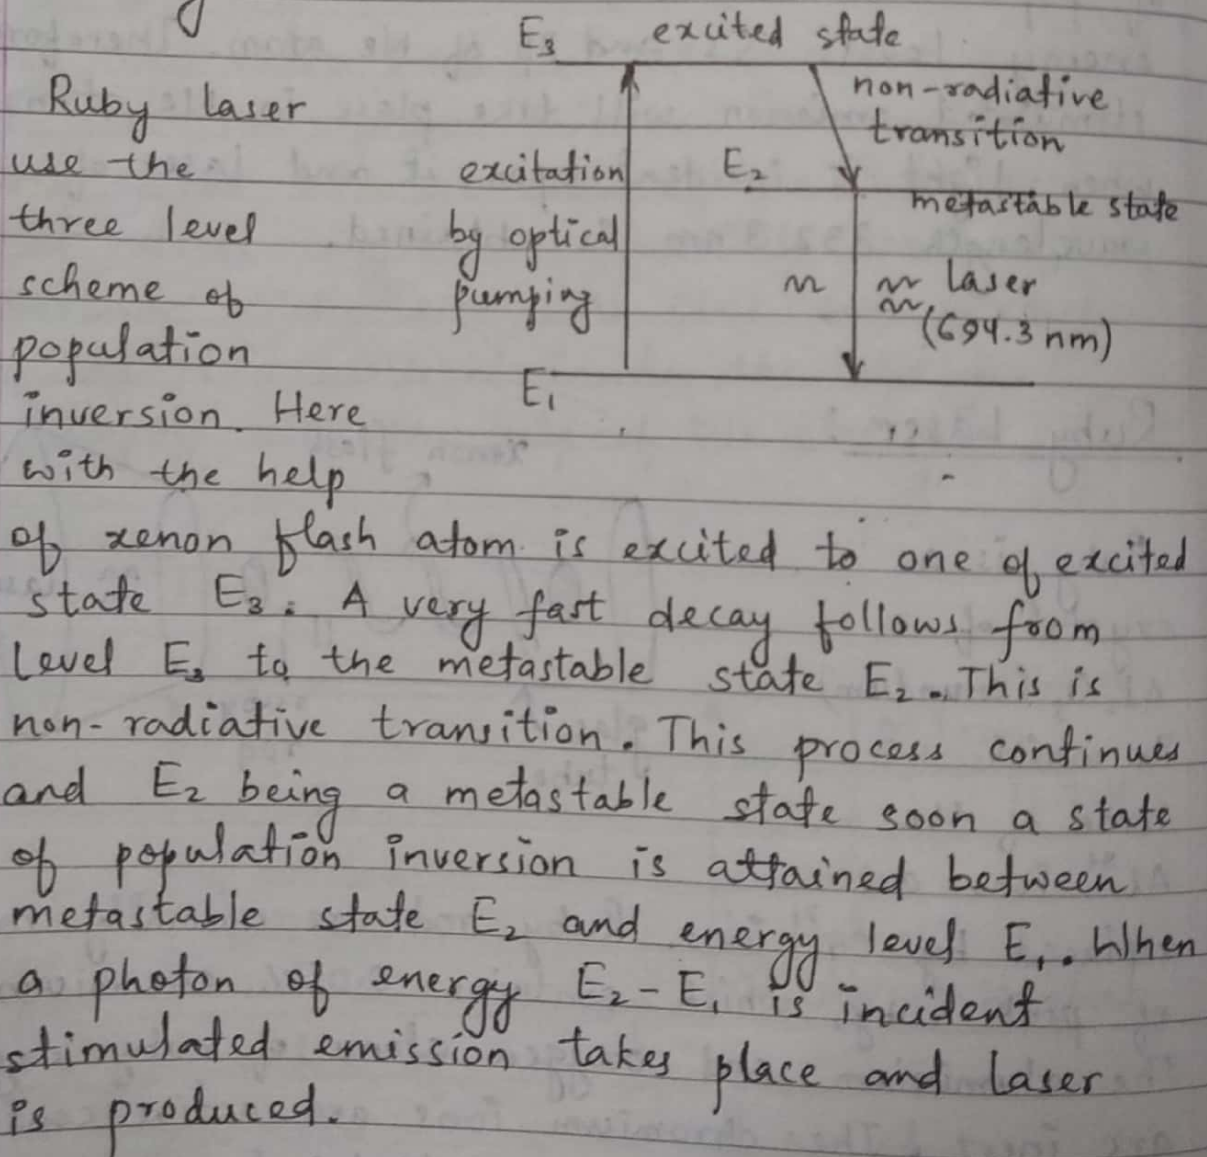 E3 excited state
non-radiative
transition
E2
metastable state
excitation
by optical
pumping
laser
(694.3 nm)
E1
Ruby laser
use the
three level
scheme of
population
inversion. Here
with the help
of xenon flash atom is excited to one of excited
state E3. A very fast decay follows from
level E3 to the metastable state E2. This is
non-radiative transition. This process continues
and E2 being a metastable state soon a state
of population inversion is attained between
metastable state E2 and energy level E1. When
a photon of energy E2-E1 is incident
stimulated emission takes place and laser
is produced.